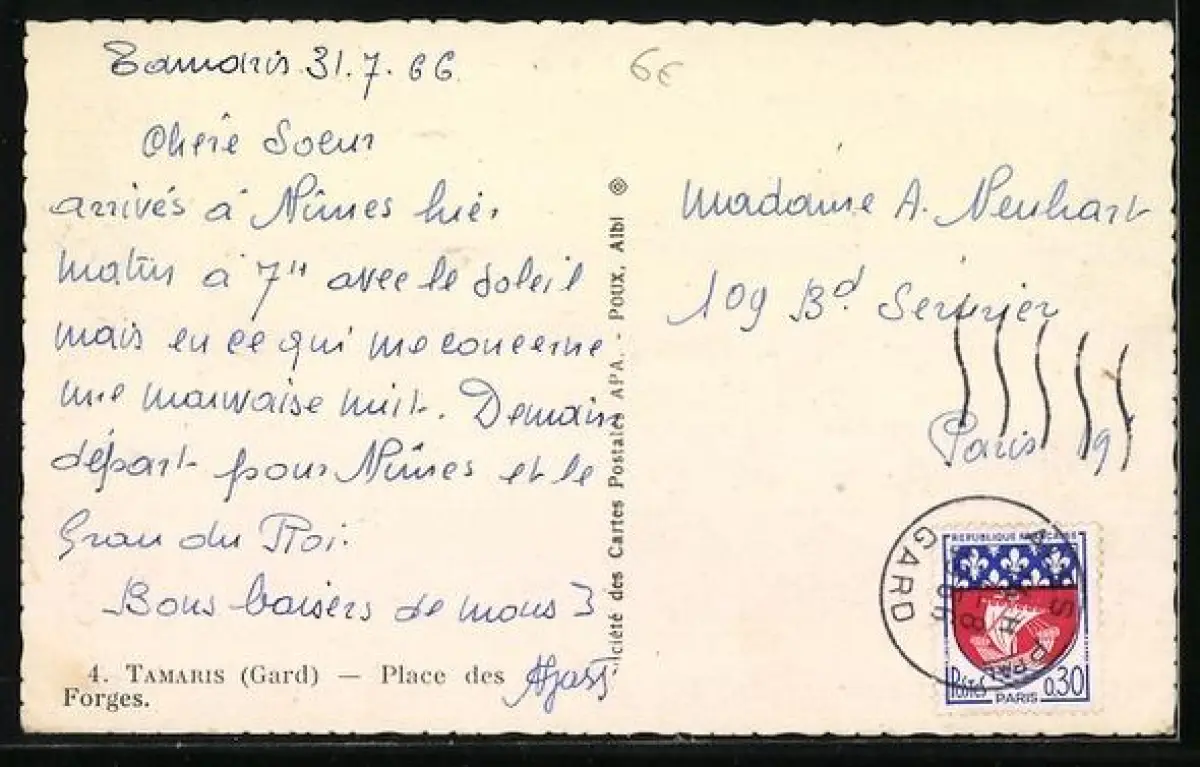 Tamaris 31.7.66
6€
Chère Soeur
arrivés à Nîmes hier
matin à 7H avec le soleil
mais en ce qui me concerne
une mauvaise nuit. Demain
départ pour Nîmes et le
Grau du Roi.
Bons baisers de nous 3
4. TAMARIS (Gard) — Place des
Forges.
ciété des Cartes Postales APA. - POUX, Albi
Madame A. Neuhart
109 Bd Sérurier
Paris 19
GARD
REPUBLIQUE FRANÇAISE
POSTES
0,30
PARIS